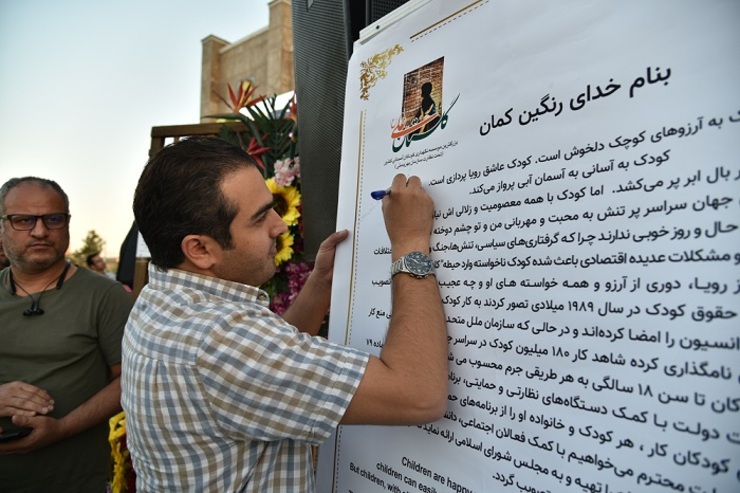 بنام خدای رنگین کمان
ک به آرزوهای کوچک دلخوش است. کودک عاشق رویا پردازی است.
کودک به آسانی به آسمان آبی پرواز می‌کند.
بال ابر پر می‌کشد. اما کودک با همه معصومیت و زلالی اش
جهان سراسر پر تنش به محبت و مهربانی من و تو چشم دوخته
حال و روز خوبی ندارند چرا که گرفتاری‌های سیاسی، تنش‌ها،
و مشکلات عدیده اقتصادی باعث شده کودک ناخواسته وارد حیطه
از رویا، دوری از آرزو و همه خواسته های او و چه عجیب
حقوق کودک در سال ۱۹۸۹ میلادی تصور کردند به کار کودک
انسیون را امضا کرده‌اند و در حالی که سازمان ملل متحد
نامگذاری کرده شاهد کار ۱۸۰ میلیون کودک در سراسر
کان تا سن ۱۸ سالگی به هر طریقی جرم محسوب می
ت دولت با کمک دستگاه‌های نظارتی و حمایتی،
کودکان کار ، هر کودک و خانواده او را از برنامه‌های
محترم می‌خواهیم با کمک فعالان اجتماعی،
تهیه و به مجلس شورای اسلامی ارائه نماید
تصویب گردد.
Children are happy
children can easily
But children, with